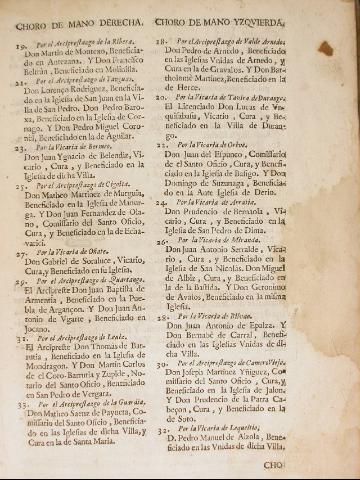 CHORO DE MANO DERECHA.
19. Por el Arciprestazgo de la Ribera.
Don Martin de Montero, Beneficia-
do en Antezana. Y Don Francisco
Beltràn, Beneficiado en
21. Por el Arciprestazgo de
Don Lorenço Rodriguez, Beneficia-
do en la Iglesia de San Juan en la Vi-
lla de San Pedro. Don Pedro Baro-
xa, Beneficiado en la Iglesia de Cor-
nago. Y Don Pedro Miguel Coro-
nèl, Beneficiado en la de Aguilar.
23. Por la Vicaria de Bermeo.
Don Juan Ygnacio de Belendiz, Vi-
cario, Cura, y Beneficiado en la
Iglesia de dicha Villa.
25. Por el Arciprestazgo de Cigoita.
Don Matheo Martinez de Murguia,
Beneficiado en la Iglesia de Manur-
ga. Y Don Juan Fernandez de Ola-
no, Comissario del Santo Oficio,
Cura, y Beneficiado en la de Echa-
varri.
27. Por la Vicaria de Oñate.
Don Gabriel de Vicario,
Cura, y Beneficiado en su Iglesia.
29. Por el Arciprestazgo de Quartango.
El Arcipreste Don Juan Baptista de
Armentia, Beneficiado en la Pue-
bla de Argançon. Y Don Juan An-
tonio de Ugarte, Beneficiado en
Jocano.
31. Por el Arciprestazgo de Leniz.
El Arcipreste Don Thomàs de Bar-
rutia, Beneficiado en la Iglesia de
Mondragon. Y Don Martin Carlos
de el Coro-Barrutia y No-
tario del Santo Oficio, Beneficiado
en San Pedro de Vergara.
33. Por el Arciprestazgo de la Guardia.
Don Matheo Saenz de Payueta, Co-
missario del Santo Oficio, Beneficia-
do en las Iglesias de dicha Villa, y
Cura en la de Santa Maria.
CHORO DE MANO YZQUIERDA.
18. Por el Arciprestazgo de Valde Arnedo.
Don Pedro de Arnedo, Beneficiado
en las Iglesias Vnidas de Arnedo, y
Cura en la de Gravalos. Y Don Bar-
tholomè Martinez, Beneficiado en la
de Herce.
20. Por la Vicaria de Tavira de Durango.
El Licenciado Don Lucas de
Vicario, Cura, y Be-
neficiado en la Villa de Duran-
go.
22. Por la Vicaria de Orduña.
Don Juan del Espanco, Comissario
de el Santo Oficio, Cura, y Benefi-
ciado en la Iglesia de Basigo. Y Don
Domingo de Suzunaga, Beneficia-
do en la Ante Iglesia de Derio.
24. Por la Vicaria de Arratia.
Don Prudencio de Bernaola, Vi-
cario, Cura, y Beneficiado en la
Iglesia de San Pedro de Dima.
26. Por la Vicaria de Miranda.
Don Juan Antonio Serralde, Vica-
rio, Cura, y Beneficiado en la
Iglesia de San Nicolàs. Don Miguel
de Albiz, Cura, y Beneficiado en
la de la Bastida. Y Don Geronimo
de Avalos, Beneficiado en la misma
Iglesia.
28. Por la Vicaria de Bilbao.
Don Juan Antonio de Epalza. Y
Don Bernabè de Carral, Benefi-
ciado en las Iglesias Vnidas de di-
cha Villa.
30. Por el Arciprestazgo de Camero Viejo.
Don Joseph Martinez Yñiguez, Co-
missario del Santo Oficio, Cura, y
Beneficiado en la Iglesia de Jalon.
Y Don Prudencio de la Patra Ca-
beçon, Cura, y Beneficiado en la
de Soto.
32. Por la Vicaria de Lequeitio.
D. Pedro Manuel de Alzola, Bene-
ficiado en las Vnidas de dicha Villa,
CHO-